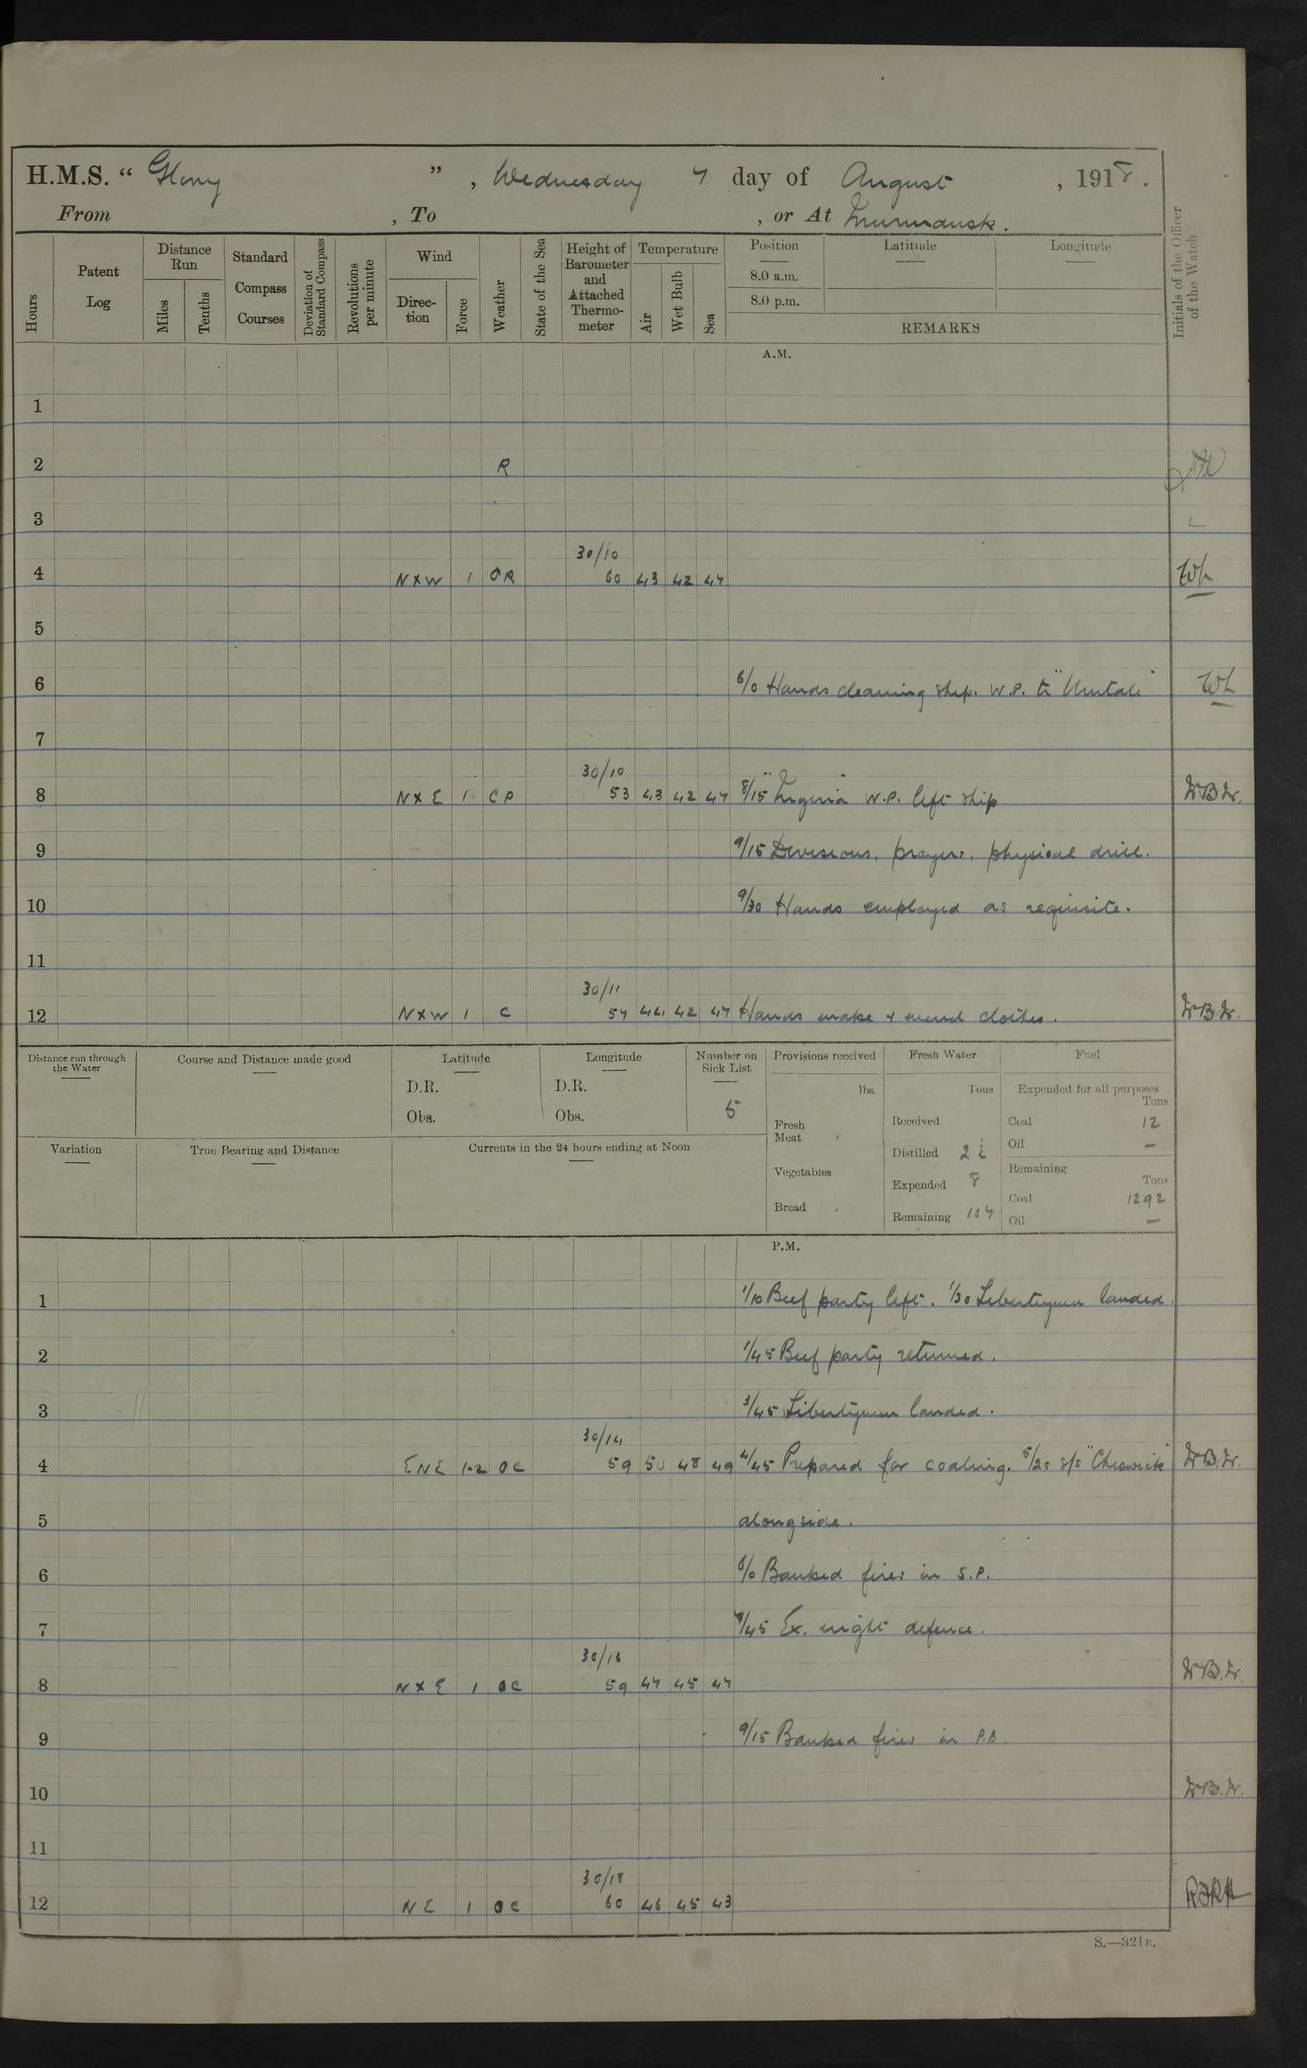 H.M.S. “ Glory ” , Wednesday 7 day of August , 1918.
From , To , or At Murmansk.
Hours
Patent Log
Distance Run
Miles
Tenths
Standard Compass Courses
Deviation of Standard Compass
Revolutions per minute
Wind
Direc- tion
Force
Weather
State of the Sea
Height of Barometer and Attached Thermo- meter
Temperature
Air
Wet Bulb
Sea
Position
Latitude
Longitude
8.0 a.m.
8.0 p.m.
REMARKS
Initials of the Officer of the Watch
A.M.
1
2 R
3
30/10
4 NXW 1 OR 60 43 42 47 WL
5
6 6/0 Hands cleaning ship. W.P. to "Umtali" WL
7
30/10
8 NXE 1 CP 53 43 42 47 8/15 W.P. left ship
9 9/15 Divisions, prayers, physical drill.
10 9/30 Hands employed as requisite.
11
30/11
12 NXW 1 C 57 44 42 47 Hands make & mend clothes.
Distance run through the Water
Course and Distance made good
Latitude
D.R.
Obs.
Longitude
D.R.
Obs.
Number on Sick List
5
Variation
True Bearing and Distance
Currents in the 24 hours ending at Noon
Provisions received
lbs.
Fresh Meat
Vegetables
Bread
Fresh Water
Tons
Received
Distilled
Expended 8
Remaining 107
Fuel
Expended for all purposes
Tons
Coal 12
Oil —
Remaining
Tons
Coal 1292
Oil —
P.M.
1 1/10 Beef party left. 1/30 Libertymen landed.
2 1/45 Beef party returned.
3 3/45 Libertymen landed.
30/14
4 ENE 1-2 OC 59 50 48 49 4/45 Prepared for coaling. 5/20 s/s "Chiswick"
5 alongside.
6 6/0 Banked fires in S.P.
7 7/45 Ex. night defence.
30/16
8 NXE 1 OC 59 47 45 47
9 9/15 Banked fires in P.B.
10
11
30/18
12 NE 1 OC 60 46 45 43
S.—321B.